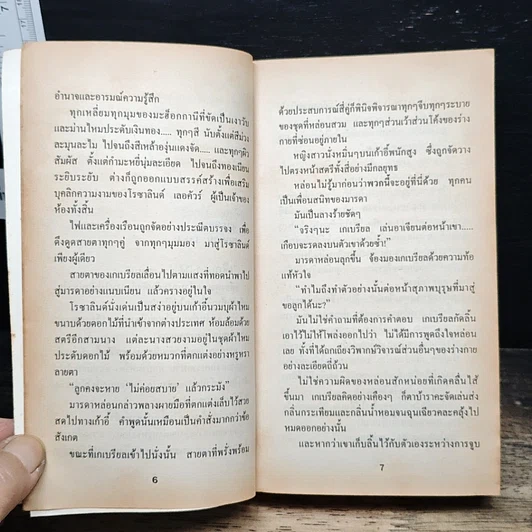 อำนาจและอารมณ์ความรู้สึก
ทุกเหลี่ยมทุกมุมของมะฮ็อกกานีที่ขัดเป็นเงาวับ
และม่านไหมประดับเงินทอง..... ทุกๆสี นับตั้งแต่สีม่วง
ละมุนละไม ไปจนถึงสีเหล้าองุ่นแดงจัด..... และทุกๆผิว
สัมผัส ตั้งแต่กำมะหยี่นุ่มละเอียด ไปจนถึงทองเนียน
ระยิบระยับ ต่างก็ถูกออกแบบสรรค์สร้างเพื่อเสริม
บุคลิกความงามของโรซาลินด์ เลอคัวร์ ผู้เป็นเจ้าของ
ห้องทั้งสิ้น
ไฟและเครื่องเรือนถูกจัดอย่างประณีตบรรจง เพื่อ
ดึงดูดสายตาทุกๆคู่ จากทุกๆมุมมอง มาสู่โรซาลินด์
เพียงผู้เดียว
สายตาของเกเบรียลเลื่อนไปตามแสงที่ทอดนำพาไป
สู่มารดาอย่างแนบเนียน แล้วตรึงอยู่ในใจ
โรซาลินด์นั่งเด่นเป็นสง่าอยู่บนเก้าอี้นวมบุผ้าไหม
ขนาบด้วยดอกไม้ที่นำเข้าจากต่างประเทศ ห้อมล้อมด้วย
สตรีอีกสามนาง แต่ละนางสวยงามอยู่ในชุดผ้าไหม
ประดับดอกไม้ พร้อมด้วยหมวกที่ตกแต่งอย่างหรูหรา
ลายตา
"ลูกคงจะหาย 'ไม่ค่อยสบาย' แล้วกระมัง"
มารดาหล่อนกล่าวพลางผายมือที่ตกแต่งเล็บไว้สวย
สดไปทางเก้าอี้ คำพูดนั้นเหมือนเป็นคำสั่งมากกว่าข้อ
สังเกต
ขณะที่เกเบรียลเข้าไปนั่งนั้น สายตาที่พรั่งพร้อม
6
ด้วยประสบการณ์สี่คู่ก็พินิจพิจารณาทุกๆจีบทุกๆระบาย
ของชุดที่หล่อนสวม และทุกๆส่วนเว้าส่วนโค้งของร่าง
กายที่ซ่อนอยู่ภายใน
หญิงสาวนั่งหมิ่นๆบนเก้าอี้พนักสูง ซึ่งถูกจัดวาง
ไปตรงหน้าสตรีทั้งสี่อย่างมีกลยุทธ
หล่อนไม่รู้มาก่อนว่าพวกนี้จะอยู่ที่นี่ด้วย ทุกคน
เป็นเพื่อนสนิทของมารดา
มันเป็นลางร้ายชัดๆ
"จริงๆนะ เกเบรียล เล่นอาเจียนต่อหน้าเขา.....
เกือบจะรดลงบนตัวเขาด้วยซ้ำ!"
มารดาหล่อนลุกขึ้น จ้องมองเกเบรียลด้วยความท้อ
แท้หัวใจ
"ทำไมถึงทำตัวอย่างนั้นต่อหน้าสุภาพบุรุษที่มาสู่
ขอลูกได้นะ?"
มันไม่ใช่คำถามที่ต้องการคำตอบ เกเบรียลกัดลิ้น
เอาไว้ไม่ให้โพล่งออกไปว่า ไม่ได้มีการพูดถึงใจหล่อน
เลย ทั้งที่ได้ถกเถียงวิพากษ์วิจารณ์ส่วนอื่นๆของร่างกาย
อย่างละเอียดถี่ถ้วน
ไม่ใช่ความผิดของหล่อนสักหน่อยที่เกิดคลื่นไส้
ขึ้นมา เกเบรียลคิดอย่างเคืองๆ ก็ตาบ้าราคะจัดเล่นส่ง
กลิ่นกระเทียมและกลิ่นน้ำหอมจนฉุนเฉียวคละคลุ้งไป
หมดออกอย่างนั้น
และหากว่าเขาเก็บลิ้นไว้กับตัวเองระหว่างการจูบ
7